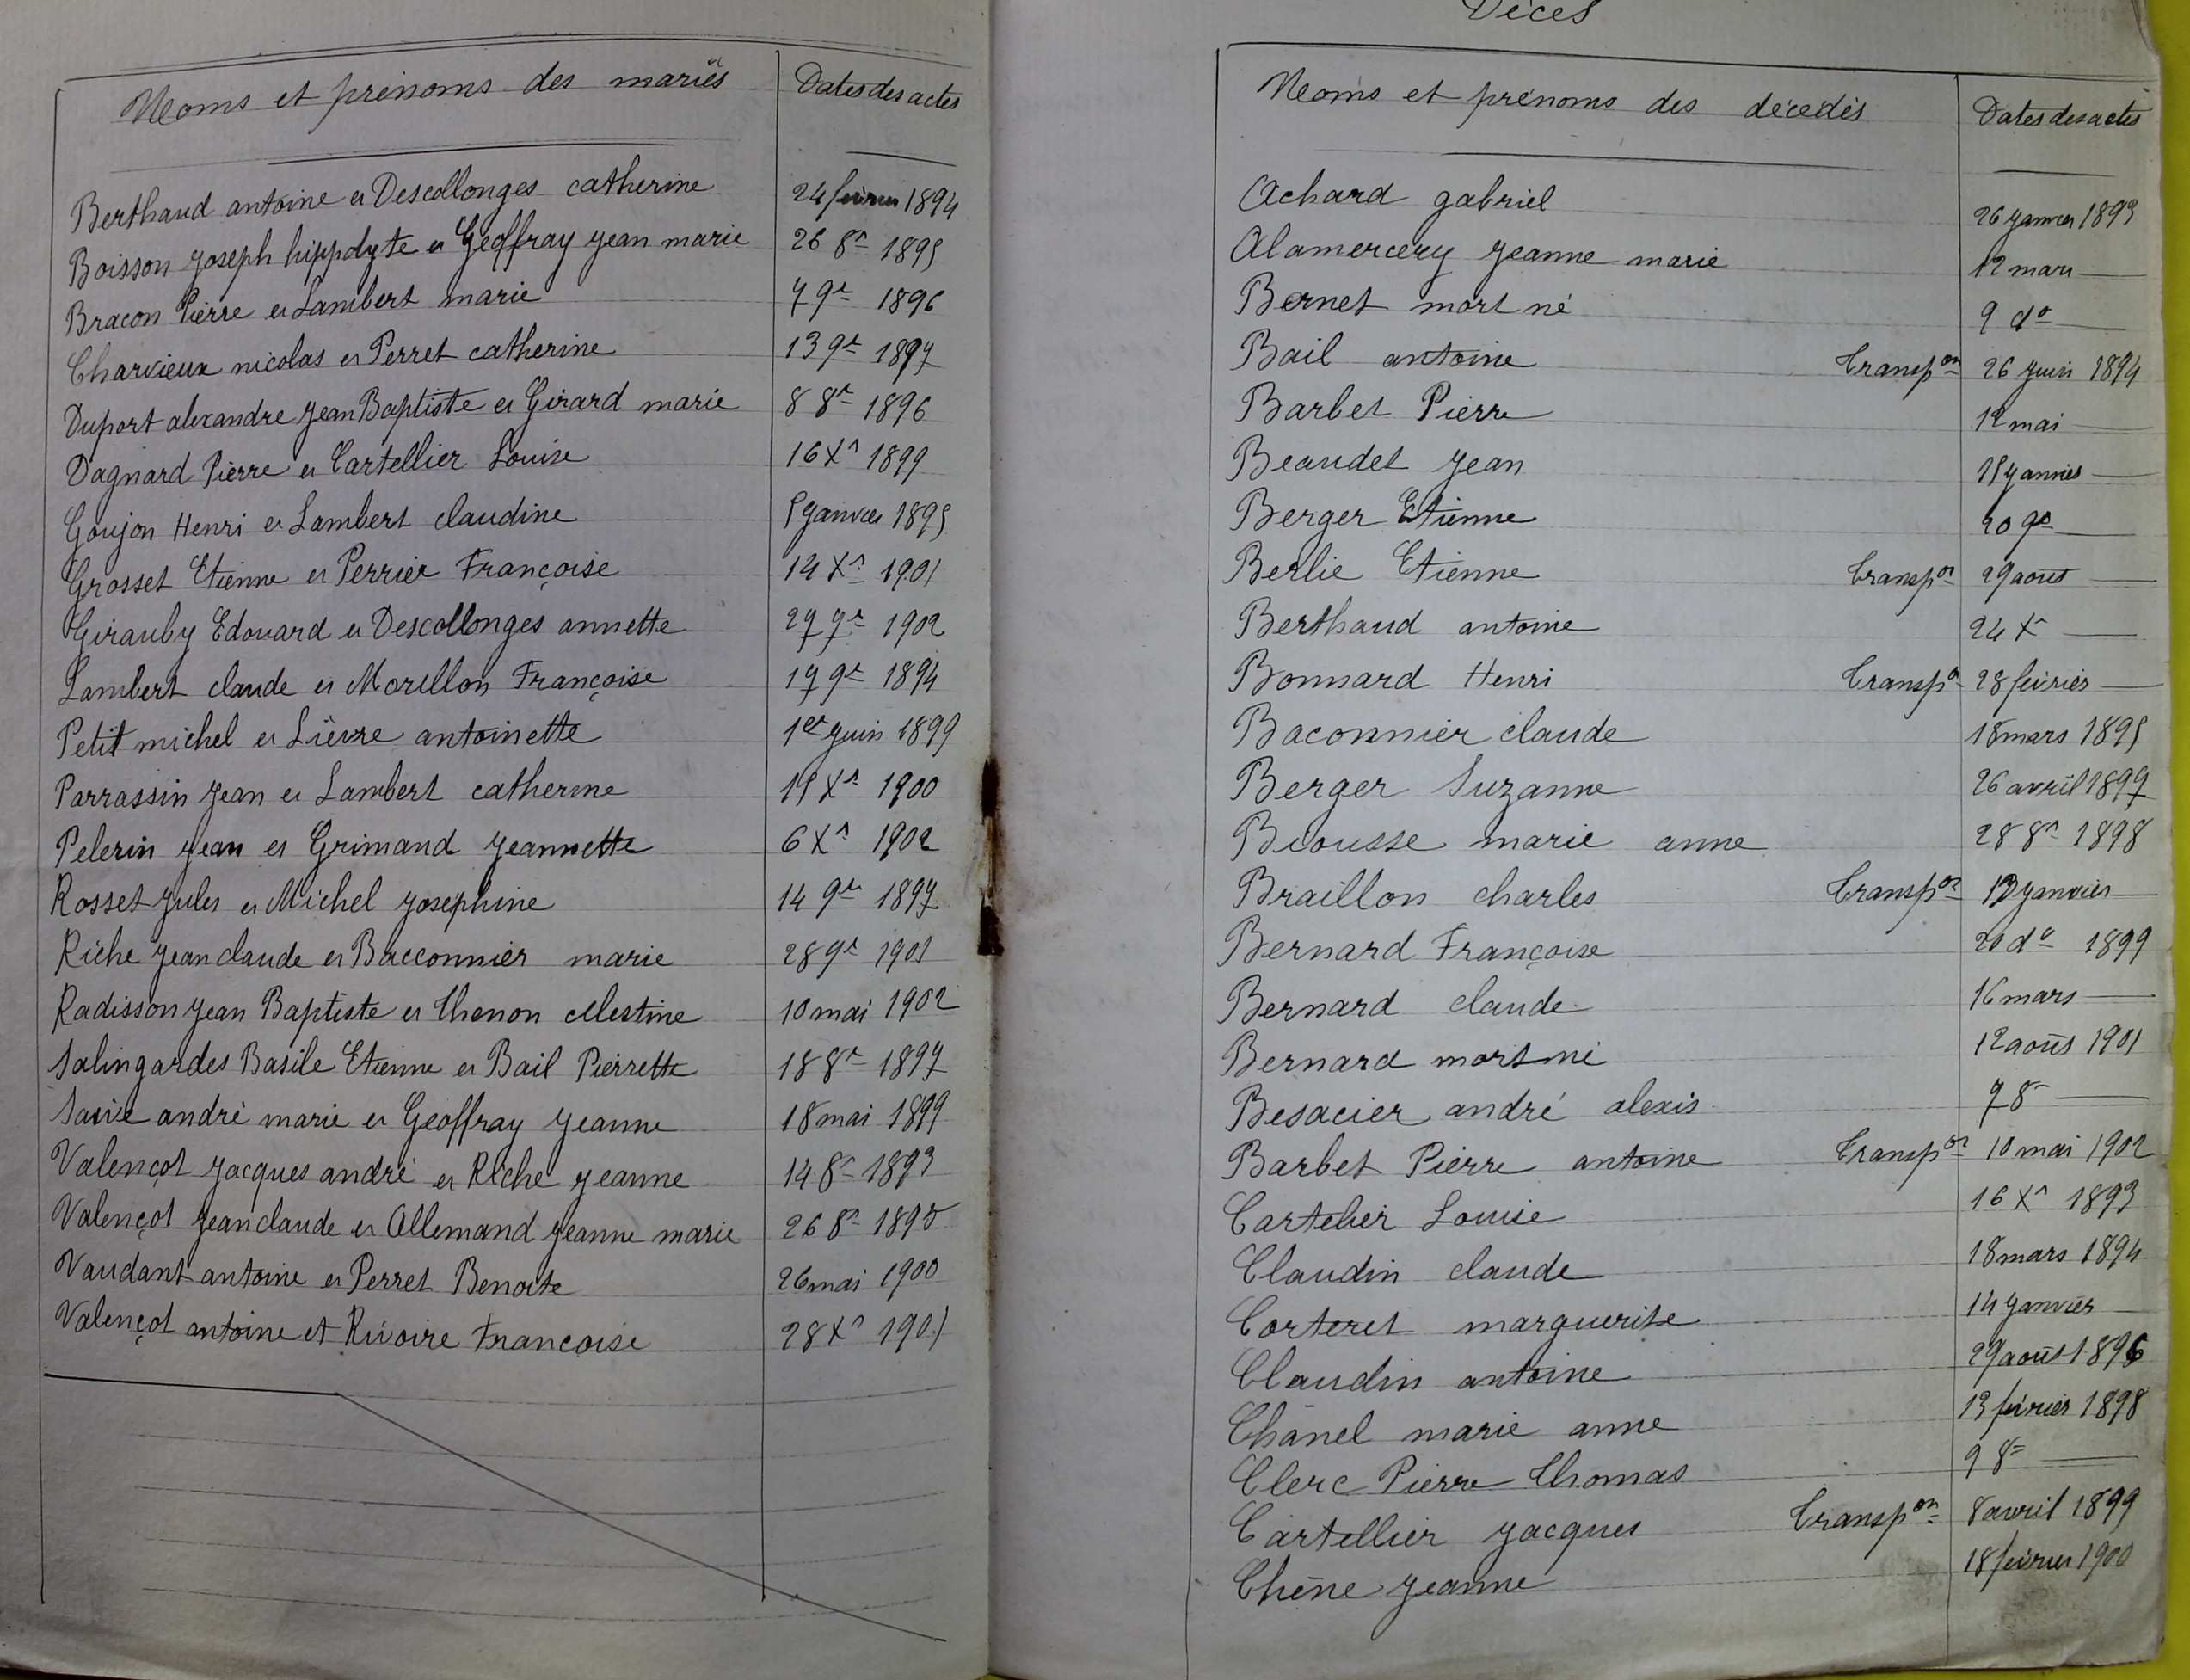 Noms et prénoms des mariés Dates des actes
Berthaud antoine et Descollonges catherine 24 février 1894
Boisson Joseph hippolyte et Geoffray Jean marie 26 8re 1895
Bracon Pierre et Lambert marie 7 9re 1896
Charvieux nicolas et Perret catherine 13 9re 1897
Duport alexandre Jean Baptiste et Girard marie 8 8re 1896
Dagnard Pierre et Cartellier Louise 16 Xre 1899
Goujon Henri et Lambert claudine 5 Janvier 1895
Grosset Etienne et Perrier Françoise 14 Xre 1901
Girauby Edouard et Descollonges annette 27 7re 1902
Lambert claude et Morellon Françoise 17 9re 1894
Petit michel et Lièvre antoinette 1er Juin 1899
Parrassin Jean et Lambert catherine 15 Xre 1900
Pelerin Jean et Grimand Jeannette 6 Xre 1902
Rosset Jules et Michel Josephine 14 9re 1897
Riche Jean claude et Bacconnier marie 28 9re 1901
Radisson Jean Baptiste et Thenon celestine 10 mai 1902
Salingardes Basile Etienne et Bail Pierrette 18 8re 1897
andré marie et Geoffray Jeanne 18 mai 1899
Valençot Jacques andré et Riche Jeanne 14 8re 1893
Valençot Jean claude et Allemand Jeanne marie 26 8re 1895
Vaudant antoine et Perret Benoite 26 mai 1900
Valençot antoine et Rivoire Francoise 28 Xre 1901
Décès
Noms et prénoms des décédés Dates des actes
Achard gabriel 26 Janvier 1893
Alamercery Jeanne marie 12 mars —
Bernet mort né 9 do —
Bail antoine Transpon 26 Juin 1894
Barbet Pierre 12 mai —
Beaudet Jean 15 Janvier —
Berger Etienne 20 9re —
Berlie Etienne Transpon 29 aout —
Berthaud antoine 24 Xre —
Bonnard Henri Transpon 28 février —
Baconnier claude 18 mars 1895
Berger Suzanne 26 avril 1897
Biousse marie anne 28 8re 1898
Braillon charles Transpon 12 Janvier —
Bernard Françoise 20 do 1899
Bernard claude 16 mars —
Bernard mort né 12 août 1901
Besacier andré alexis 7 8re —
Barbet Pierre antoine Transpon 10 mai 1902
Cartelier Louise 16 Xre 1893
Claudin claude 18 mars 1894
Corteret marguerite 14 Janvier —
Claudin antoine 29 août 1896
Chanel marie anne 13 février 1898
Clerc Pierre Thomas 9 8re —
Cartellier Jacques Transpon 8 avril 1899
Chêne Jeanne 18 février 1900